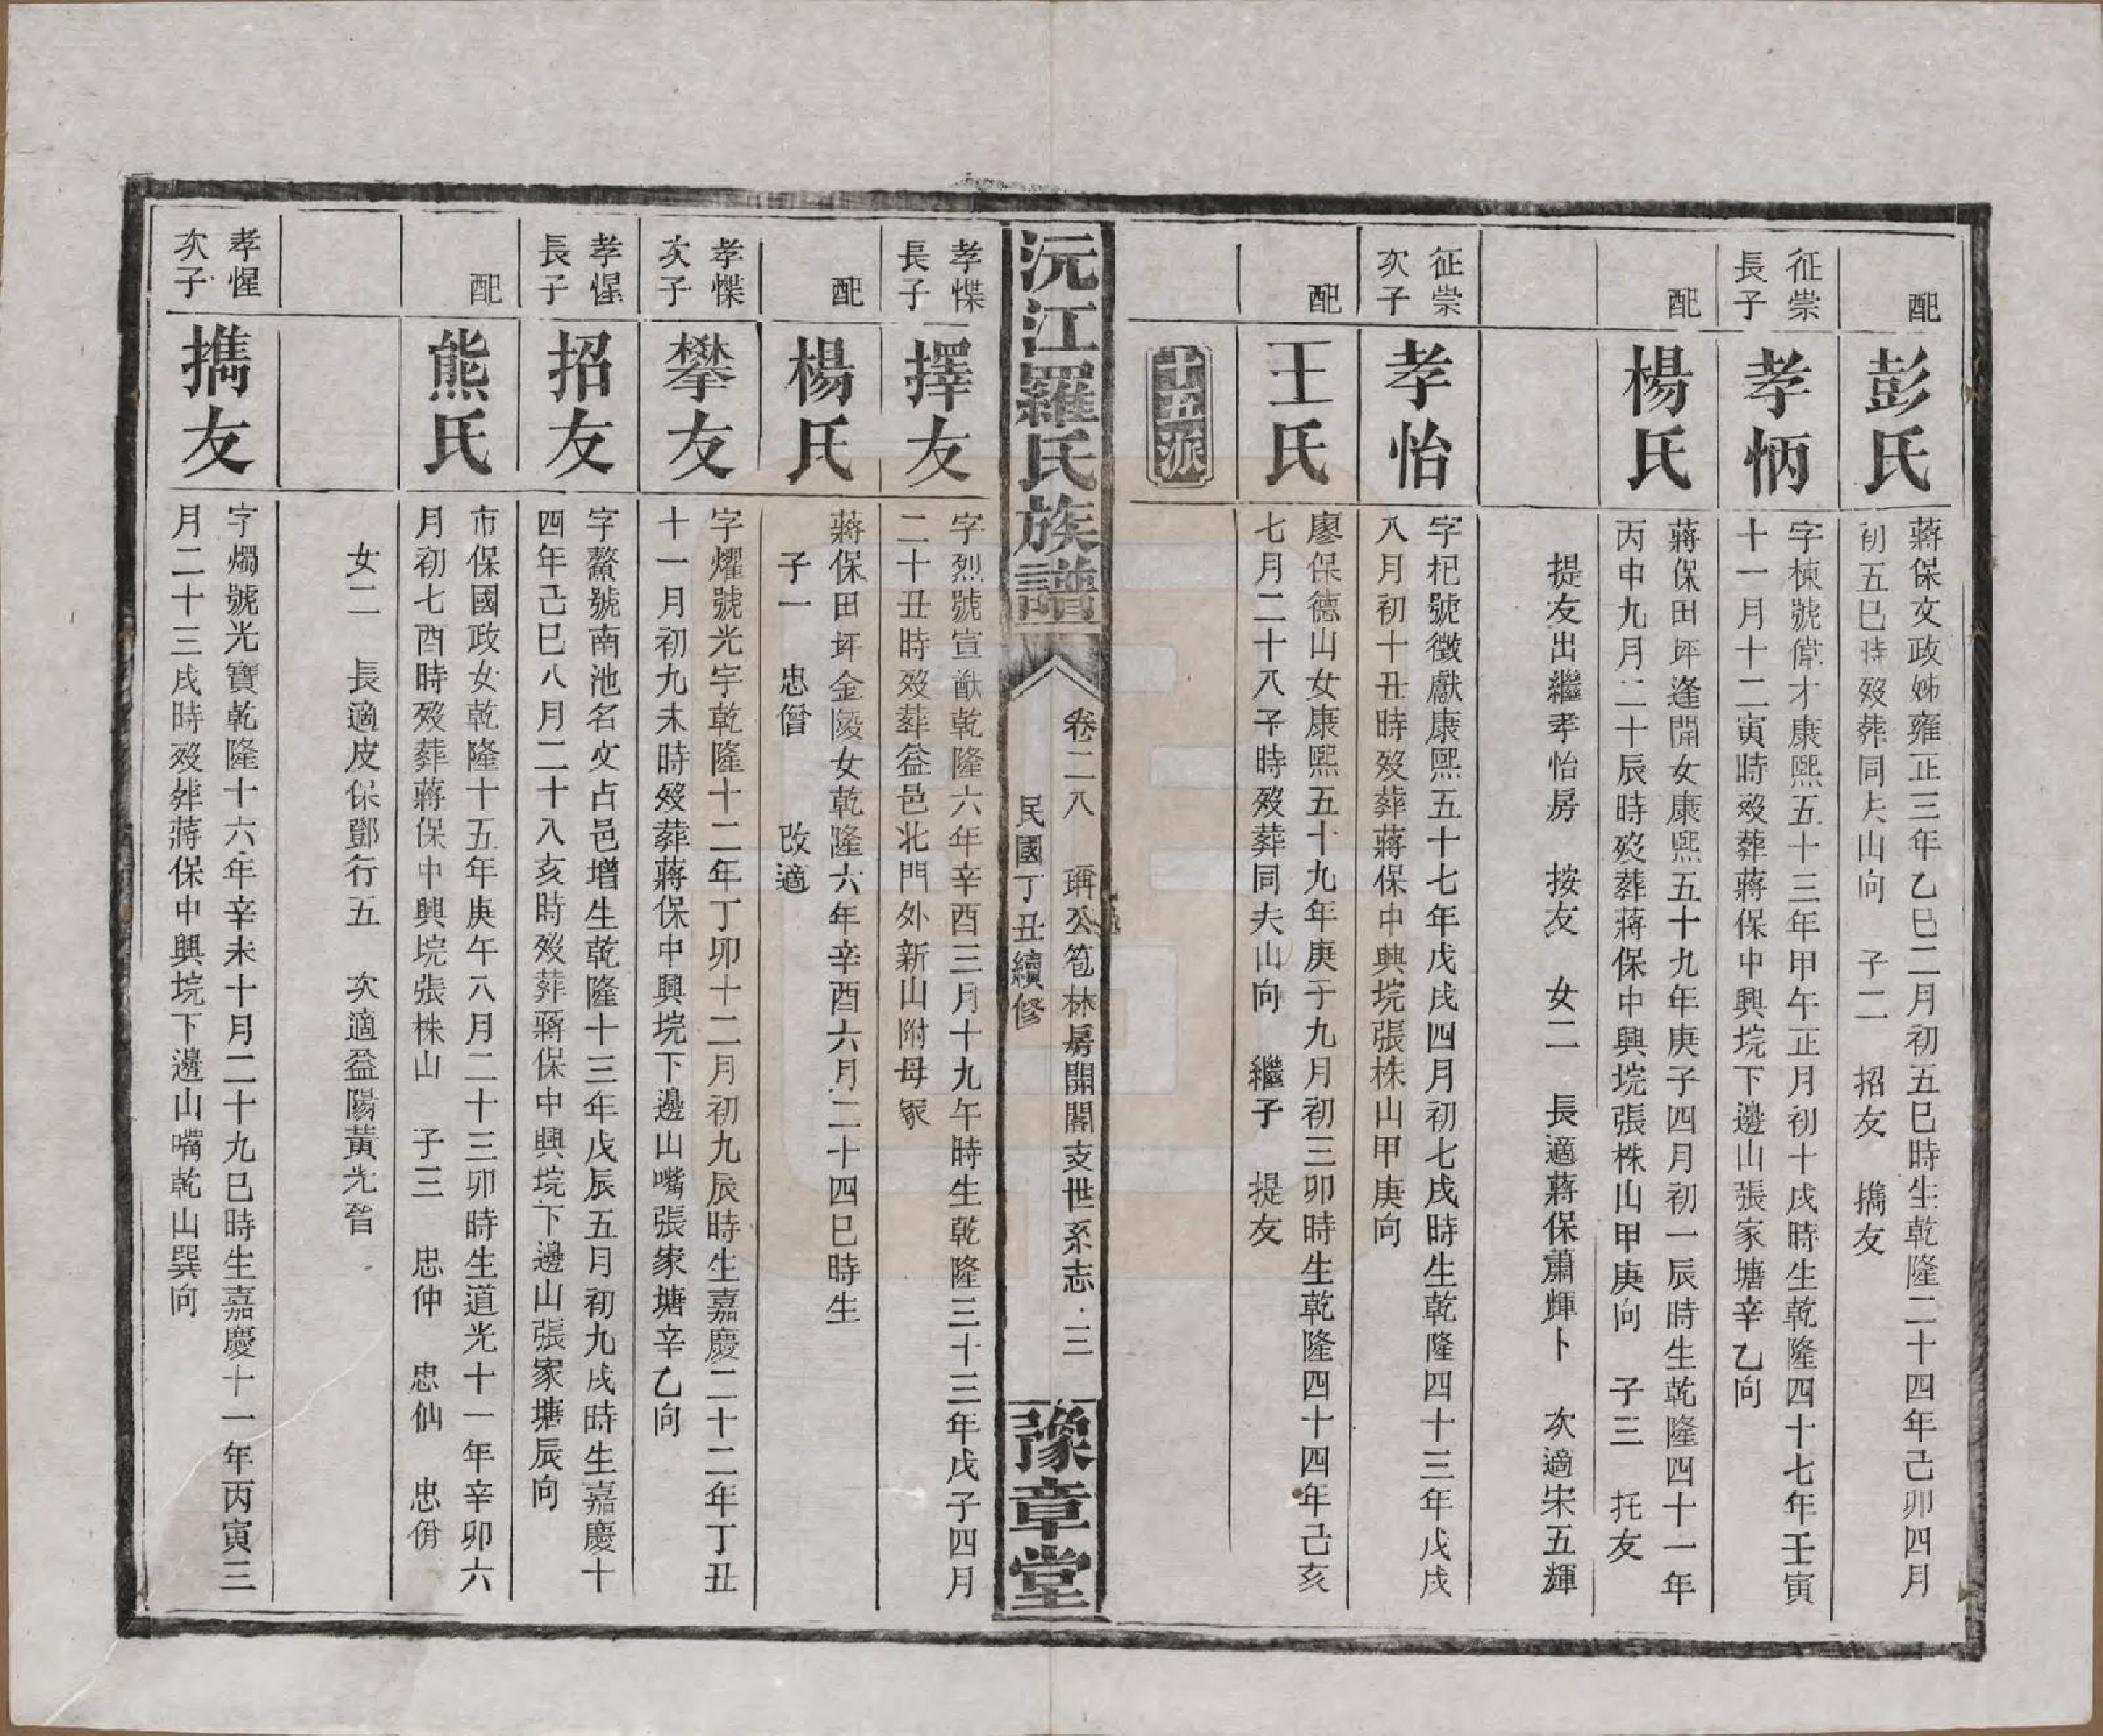 配
彭氏
蔣保文政姊雍正三年乙巳二月初五巳時生乾隆二十四年己卯四月
初五巳時歿葬同夫山向 子二 招友 㩦友
征崇
長子
孝怲
字棟號儻才康熙五十三年甲午正月初十戌時生乾隆四十七年壬寅
十一月十二寅時歿葬蔣保中興垸下邊山張家塘辛乙向
配
楊氏
蔣保田坪逢開女康熙五十九年庚子四月初一辰時生乾隆四十一年
丙申九月二十辰時歿葬蔣保中興垸張株山甲庚向 子三 托友
提友出繼孝怡房 按友 女二 長適蔣保蕭輝卜 次適宋五輝
征崇
次子
孝怡
字杞號徵獻康熙五十七年戊戌四月初七戌時生乾隆四十三年戊戌
八月初十丑時歿葬蔣保中興垸張株山甲庚向
配
王氏
廖保德山女康熙五十九年庚子九月初三卯時生乾隆四十四年己亥
七月二十八子時歿葬同夫山向 繼子 提友
十五派
沅江羅氏族譜
卷二八 琲公苞林房開閣支世系志 三
民國丁丑續修
豫章堂
孝惵
長子
擇友
字烈號宣猷乾隆六年辛酉三月十九午時生乾隆三十三年戊子四月
二十丑時歿葬益邑北門外新山附母冢
配
楊氏
蔣保田坪金陵女乾隆六年辛酉六月二十四巳時生
子一 忠僧 改適
孝惵
次子
攀友
字燿號光宇乾隆十二年丁卯十二月初九辰時生嘉慶二十二年丁丑
十一月初九未時歿葬蔣保中興垸下邊山嘴張家塘辛乙向
孝惺
長子
招友
字鰲號南池名文占邑增生乾隆十三年戊辰五月初九戌時生嘉慶十
四年己巳八月二十八亥時歿葬蔣保中興垸下邊山張家塘辰向
配
熊氏
市保國政女乾隆十五年庚午八月二十三卯時生道光十一年辛卯六
月初七酉時歿葬蔣保中興垸張株山 子三 忠仲 忠仙 忠佾
女二 長適皮保鄧行五 次適益陽黃光晉
孝惺
次子
㩦友
字燭號光寶乾隆十六年辛未十月二十九巳時生嘉慶十一年丙寅三
月二十三戌時歿葬蔣保中興垸下邊山嘴乾山巽向